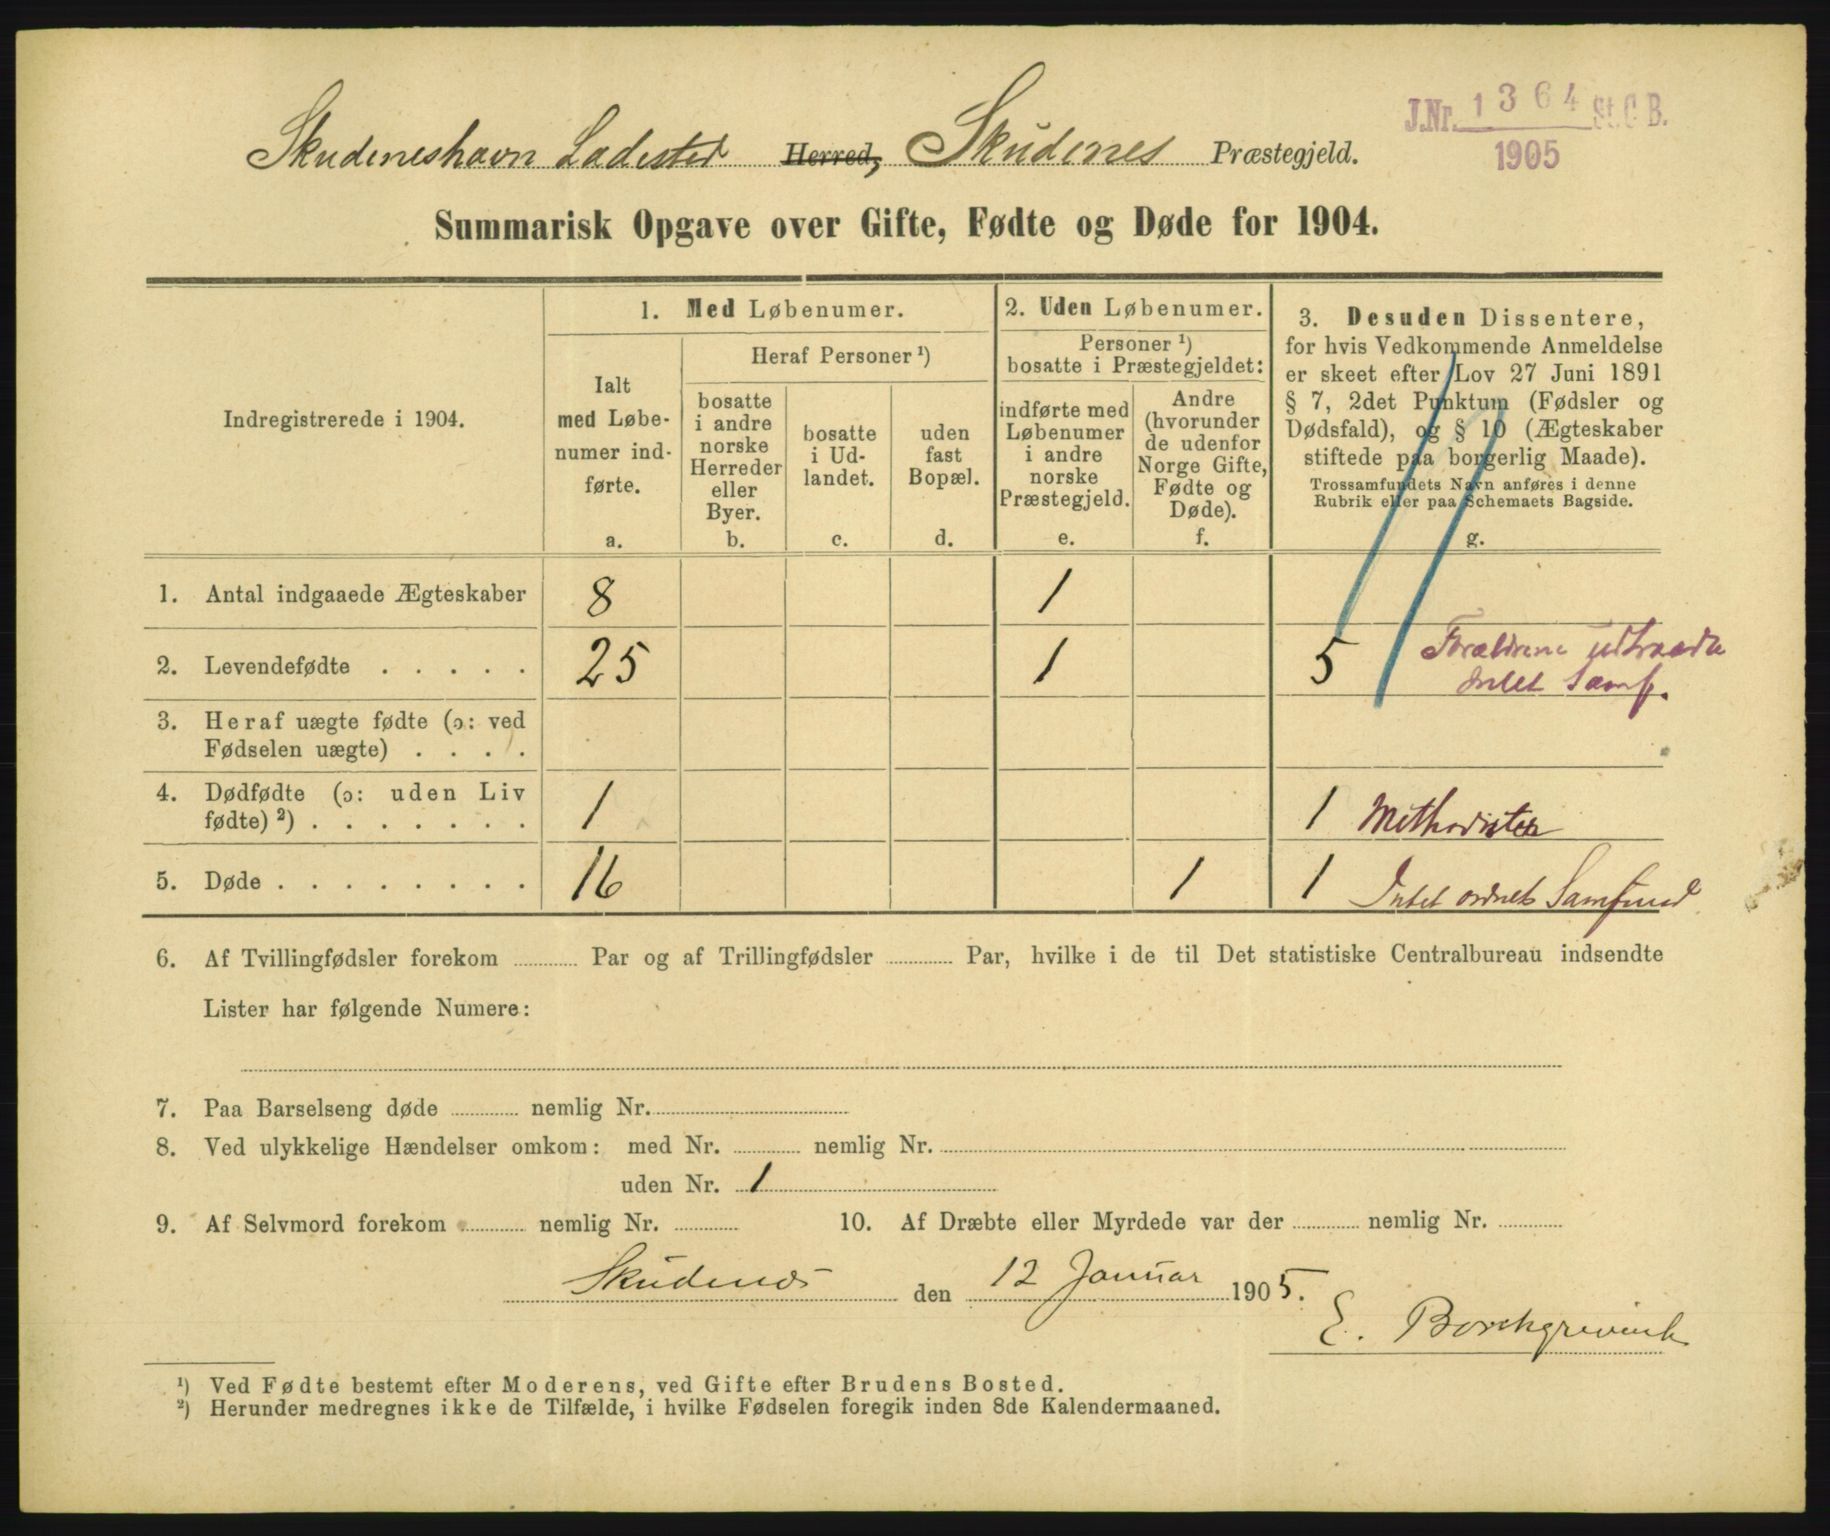 J.Nr. 1364 St.C.B.
1905
Skudeneshavn Ladested Herred, Skudenes Præstegjeld.
Summarisk Opgave over Gifte, Fødte og Døde for 1904.
Indregistrerede i 1904.
1. Med Løbenumer.
Ialt
med Løbe-
numer ind-
førte.
a.
Heraf Personer ¹)
bosatte
i andre
norske
Herreder
eller
Byer.
b.
bosatte
i Ud-
landet.
c.
uden
fast
Bopæl.
d.
2. Uden Løbenumer.
Personer ¹)
bosatte i Præstegjeldet:
indførte med
Løbenumer
i andre
norske
Præstegjeld.
e.
Andre
(hvorunder
de udenfor
Norge Gifte,
Fødte og
Døde).
f.
3. Desuden Dissentere,
for hvis Vedkommende Anmeldelse
er skeet efter Lov 27 Juni 1891
§ 7, 2det Punktum (Fødsler og
Dødsfald), og § 10 (Ægteskaber
stiftede paa borgerlig Maade).
Trossamfundets Navn anføres i denne
Rubrik eller paa Schemaets Bagside.
g.
1. Antal indgaaede Ægteskaber 8 1
2. Levendefødte . . . . . 25 1 5 Forældrene udtraadte
Intet Samf.
3. Heraf uægte fødte (ɔ: ved
Fødselen uægte) . . . .
4. Dødfødte (ɔ: uden Liv
fødte) ²) . . . . . . . 1 1 Methodister
5. Døde . . . . . . . . 16 1 1 Intet ordnet Samfund
6. Af Tvillingfødsler forekom ............ Par og af Trillingfødsler ............ Par, hvilke i de til Det statistiske Centralbureau indsendte
Lister har følgende Numere:
7. Paa Barselseng døde ............ nemlig Nr. ............
8. Ved ulykkelige Hændelser omkom: med Nr. ............ nemlig Nr. ............
uden Nr. 1
9. Af Selvmord forekom ............ nemlig Nr. ............ 10. Af Dræbte eller Myrdede var der ............ nemlig Nr. ............
Skudenes den 12 Januar 1905.
E. Borchgrevink
¹) Ved Fødte bestemt efter Moderens, ved Gifte efter Brudens Bosted.
²) Herunder medregnes ikke de Tilfælde, i hvilke Fødselen foregik inden 8de Kalendermaaned.